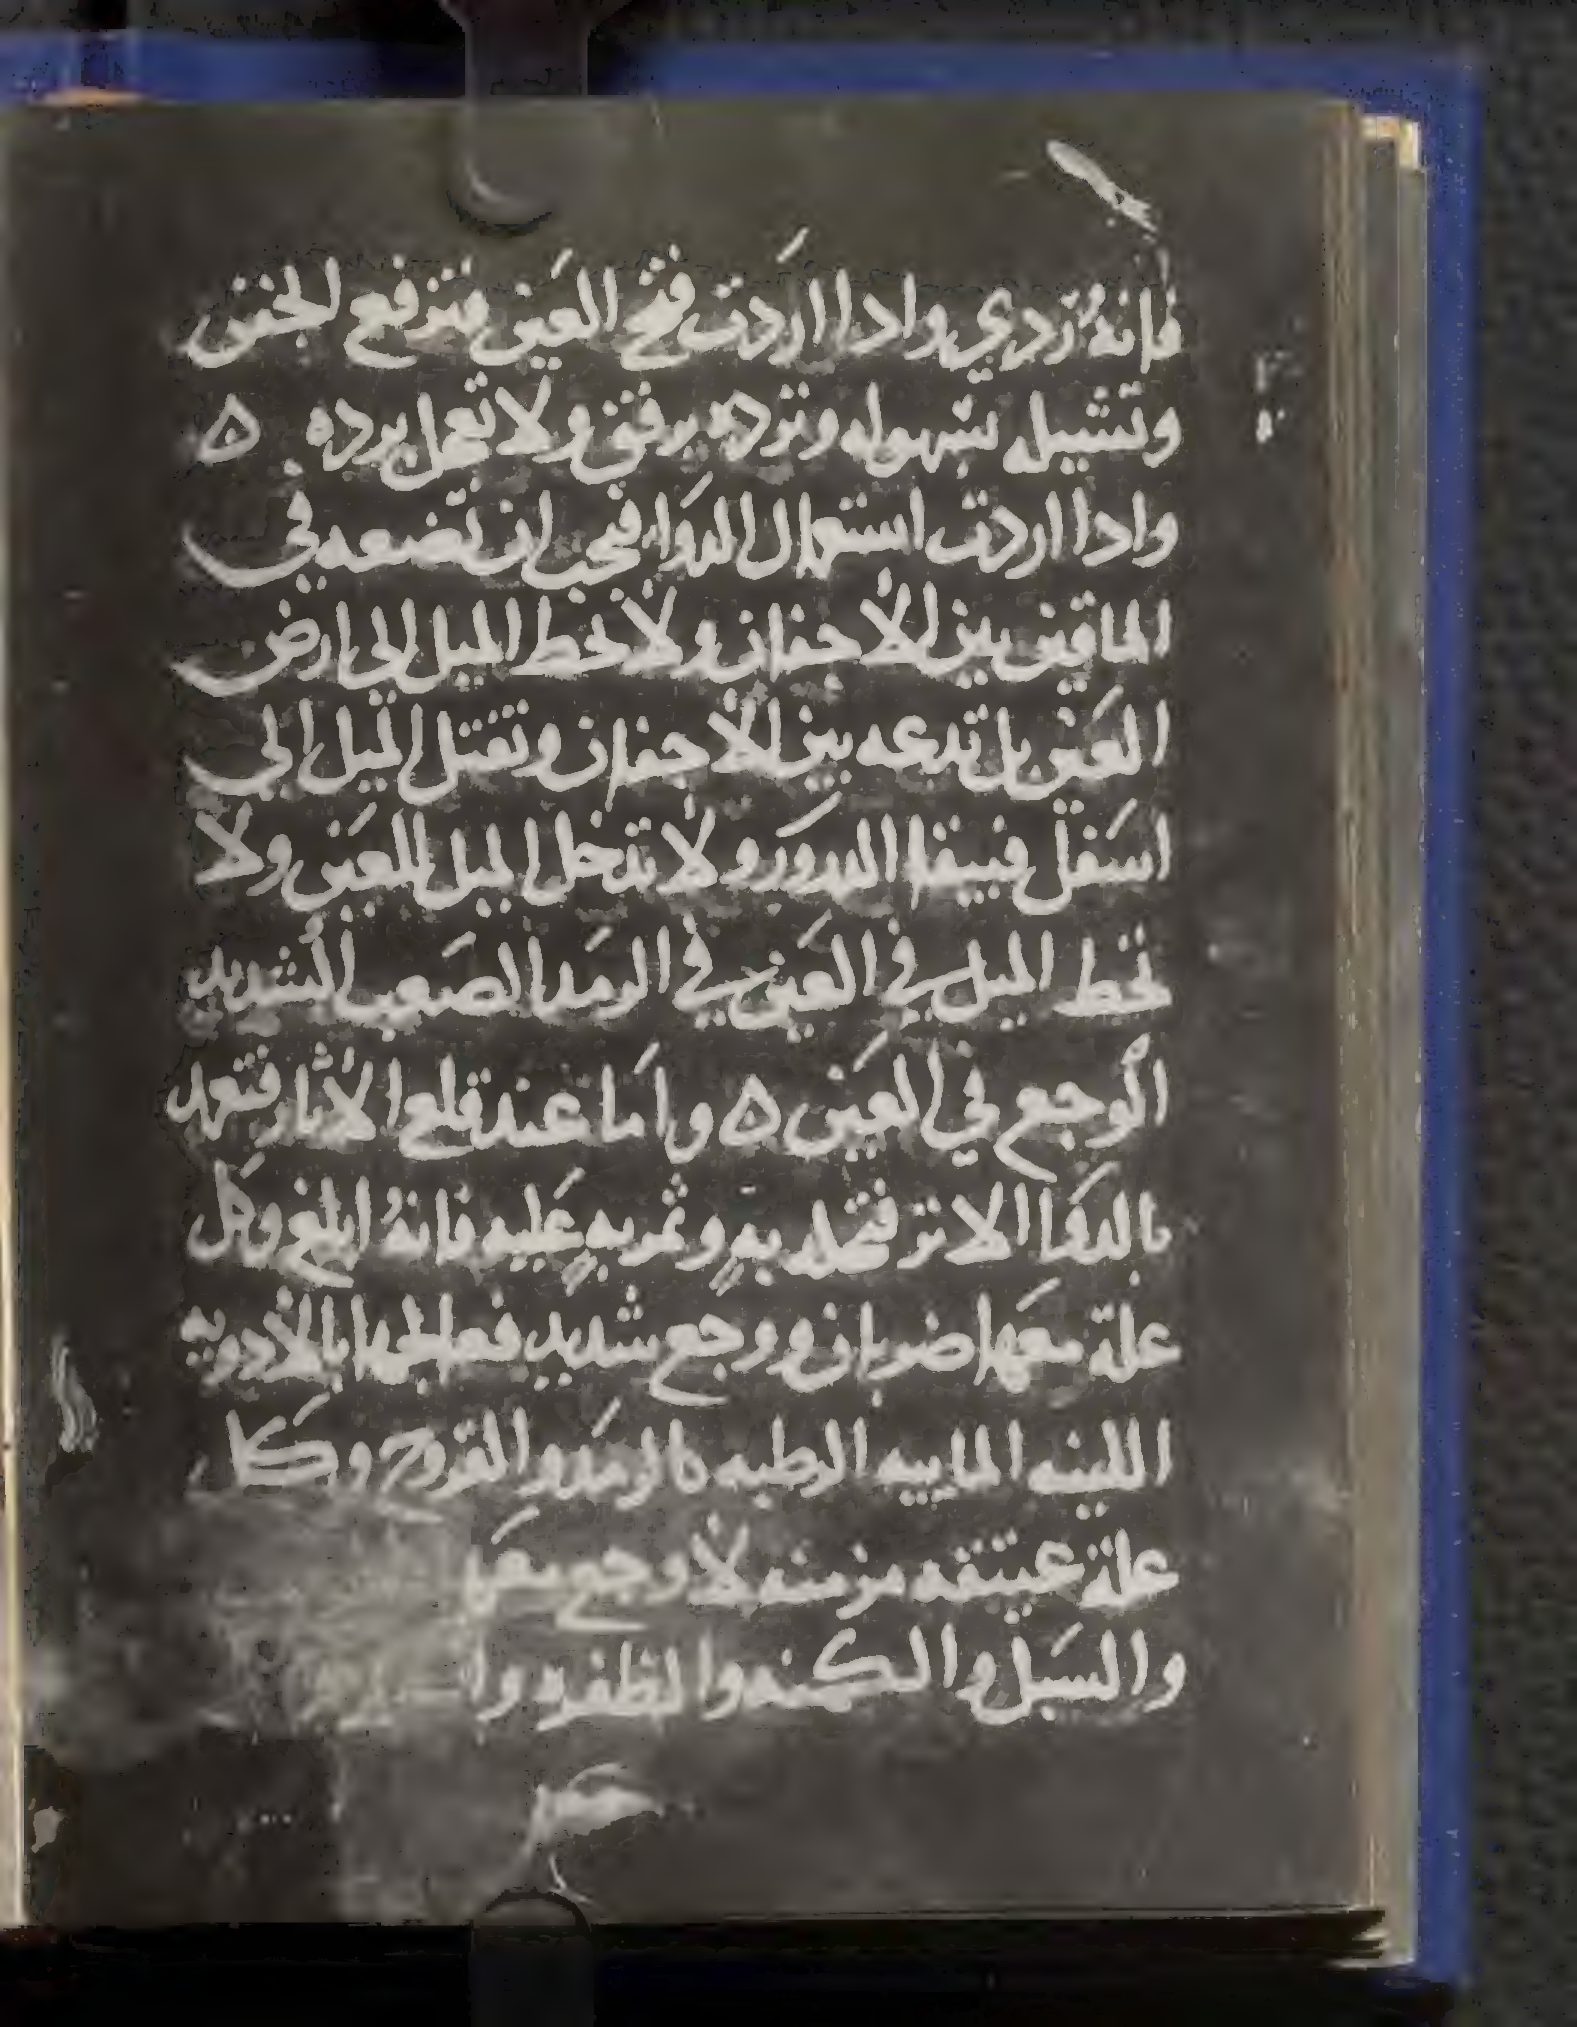 فانه تردي وادا اردت فتح العين فترفع الجفن
وتشيل بسهوله وترده برفق ولا تعجل برده ه
وادا اردت استعمال الدوا فيجب ان تضعه في
الماقين بين الاجفان ولا تحط الميل الى ارض
العين بل تدعه بين الاجفان وتفتل الميل الى
اسفل فيبقا الدرور ولا تدخل الميل للعين ولا
تحط الميل في العين في الرمد الصعب الشديد
الوجع في العين ه واما عند قلع الاثار فتعمد
بالدوا الاثر فتحك به وتمر به عليه فانه ابلغ وكل
علة معها ضربان ووجع شديد فعالجها بالأدويه
اللينه المابيه الرطبه كالرمد والقروح وكل
علة عتيقه مزمنه لا وجع معها
والسبل والكمنه والظفره وا